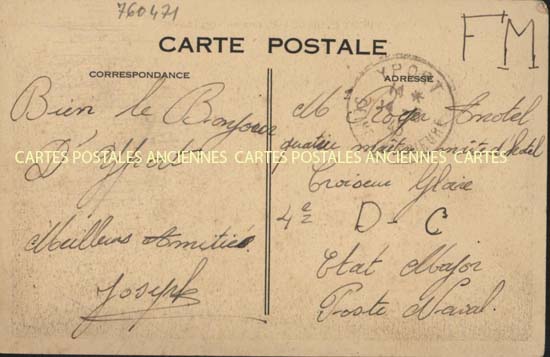 760471
FM
CARTE POSTALE
CORRESPONDANCE
ADRESSE
YPORT
Bien le Bonjour
D'Yport
Meilleurs Amitiés
Joseph
M Roger Anotel
quartier maître
Croiseur Gloire
4e D-C
Etat Major
Poste Naval.
CARTES POSTALES ANCIENNES CARTES POSTALES ANCIENNES CARTES